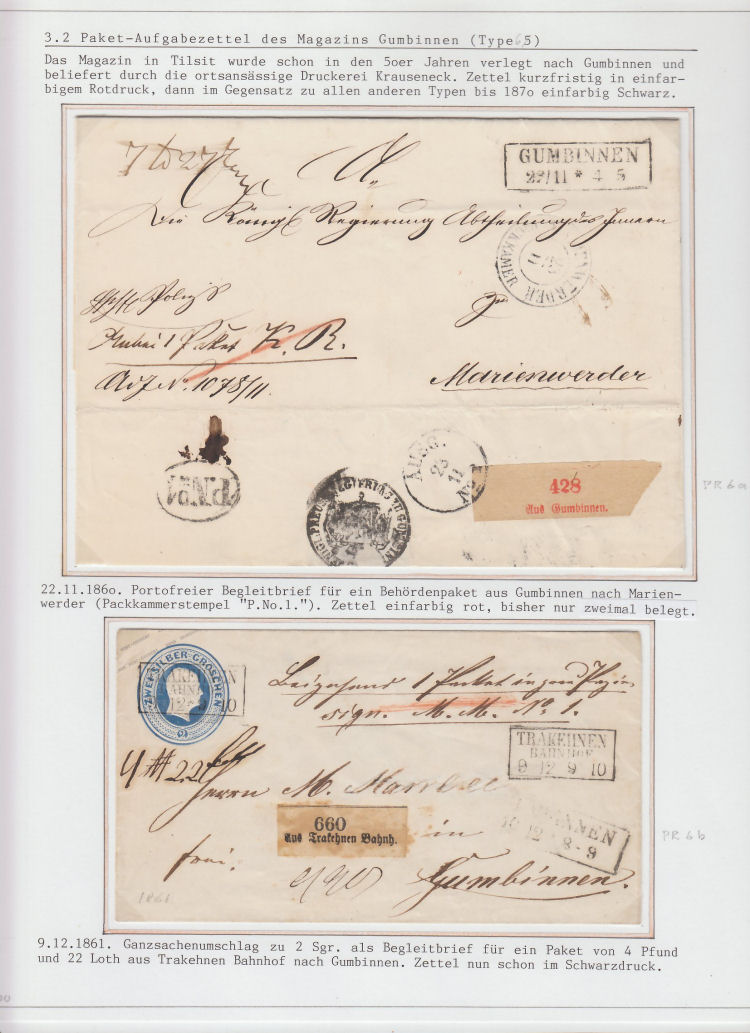 3.2 Paket-Aufgabezettel des Magazins Gumbinnen (Type 5)
Das Magazin in Tilsit wurde schon in den 5oer Jahren verlegt nach Gumbinnen und
beliefert durch die ortsansässige Druckerei Krauseneck. Zettel kurzfristig in einfar-
bigem Rotdruck, dann im Gegensatz zu allen anderen Typen bis 187o einfarbig Schwarz.
GUMBINNEN
22/11 * 4 5
Die Königl Regierung Abtheilung des Innern
zu
1 Paket K. R.
Marienwerder
AUSG.
23
11
P.No1
428
Aus Gumbinnen.
PR 6a
22.11.186o. Portofreier Begleitbrief für ein Behördenpaket aus Gumbinnen nach Marien-
werder (Packkammerstempel "P.No.1."). Zettel einfarbig rot, bisher nur zweimal belegt.
ZWEI SILBER-GROSCHEN
1 Packet
sign. M. M. No 1.
TRAKEHNEN
BAHNHOF
9 12 9 10
Herrn M.
660
Aus Trakehnen Bahnh.
in
8-9
PR 6b
frei.
Gumbinnen.
1861
9.12.1861. Ganzsachenumschlag zu 2 Sgr. als Begleitbrief für ein Paket von 4 Pfund
und 22 Loth aus Trakehnen Bahnhof nach Gumbinnen. Zettel nun schon im Schwarzdruck.